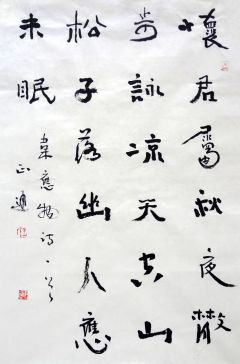 懷君屬秋夜散
步詠凉天空山
松子落幽人應
未眠
韋應物詩一首
正